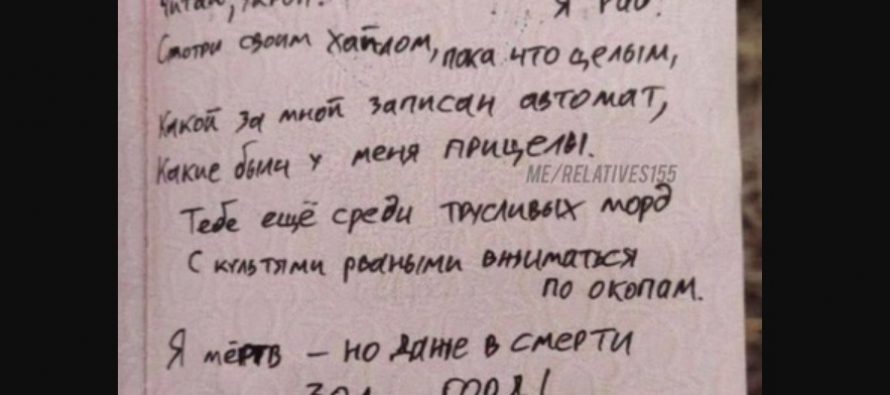 Читай,
Я рад!
Смотри своим хайлом, пока что целым,
Какой за мной записан автомат,
Какие были у меня прицелы.
ME/RELATIVES155
Тебе ещё среди трусливых морд
С культями рваными вжиматься
по окопам.
Я мёртв – но даже в смерти